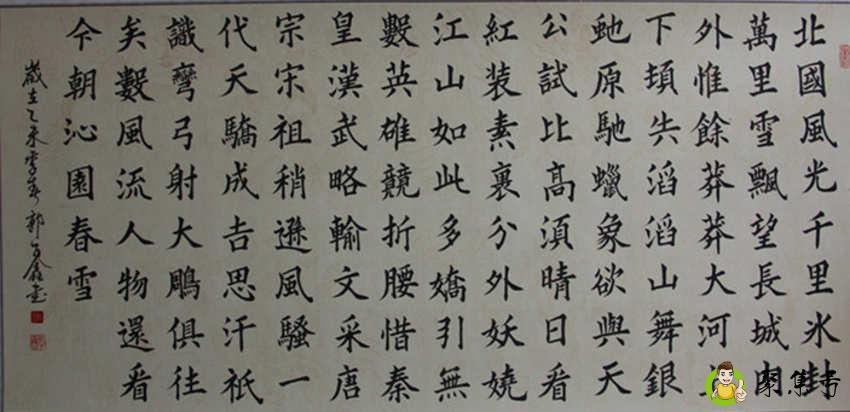 北國風光千里冰封
萬里雪飄望長城内
外惟餘莽莽大河上
下頓失滔滔山舞銀
虵原馳蠟象欲與天
公試比高須晴日看
紅装素裹分外妖嬈
江山如此多嬌引無
數英雄競折腰惜秦
皇漢武略輸文采唐
宗宋祖稍遜風騷一
代天驕成吉思汗祇
識彎弓射大鵰俱往
矣數風流人物還看
今朝沁園春雪
歲在乙未
聚集号